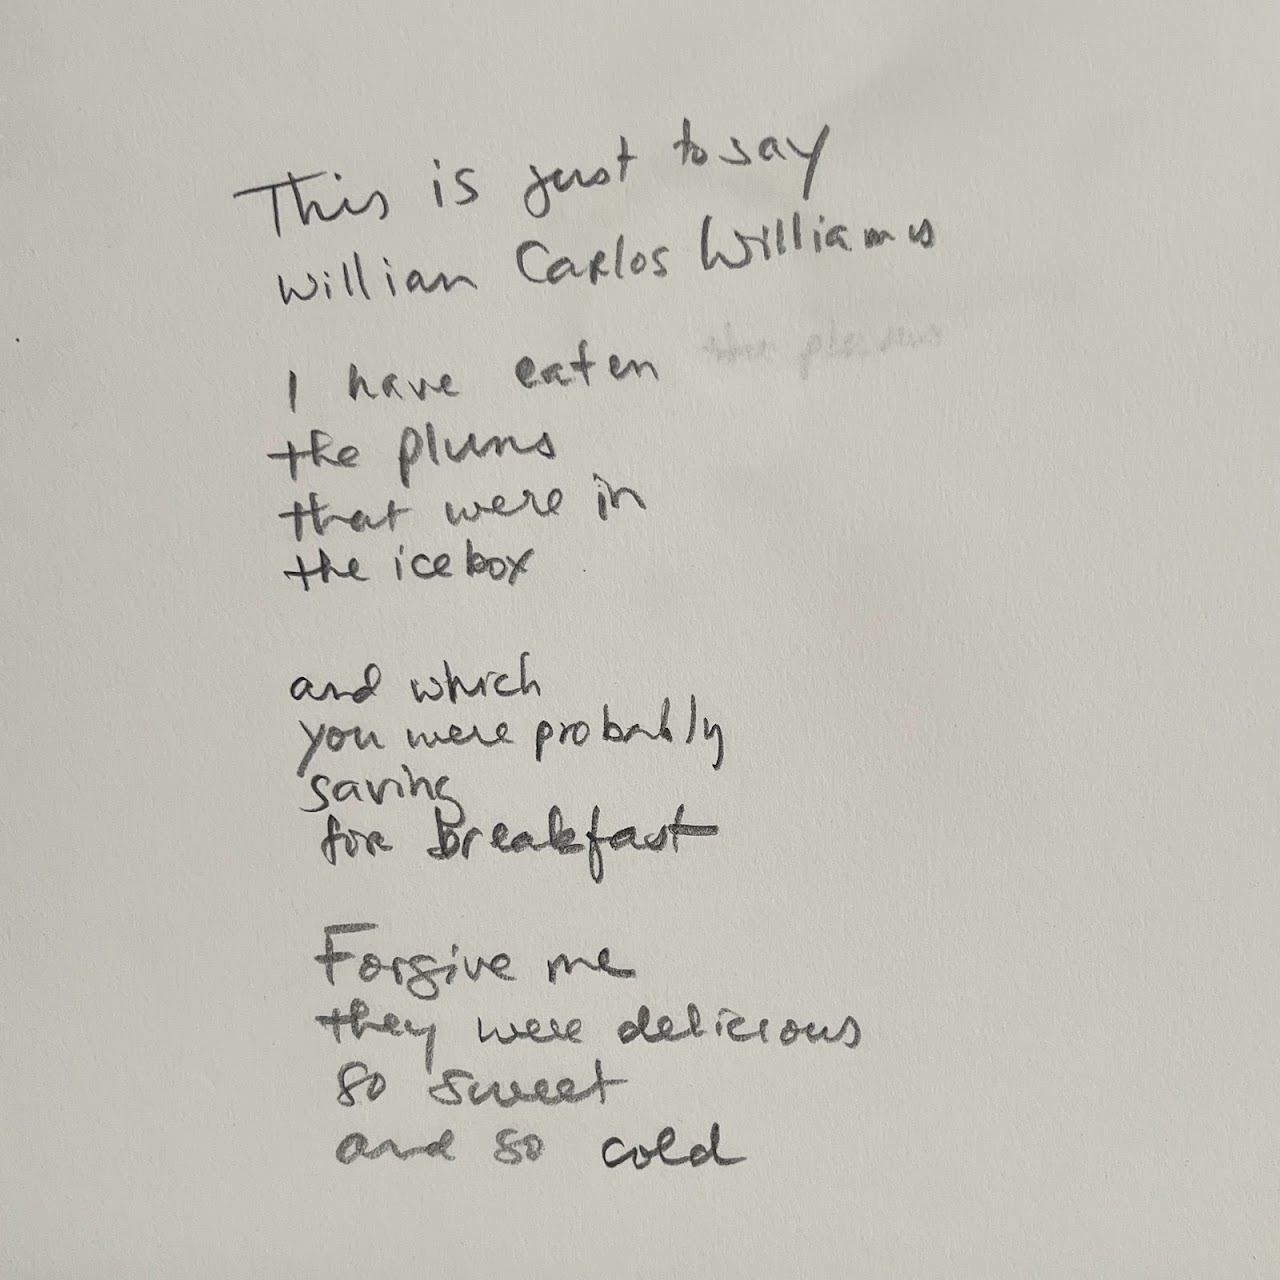 This is just to say
Willian Carlos Williams
I have eaten the plums
the plums
that were in
the icebox
and which
you were probably
saving
for breakfast
Forgive me
they were delicious
so sweet
and so cold